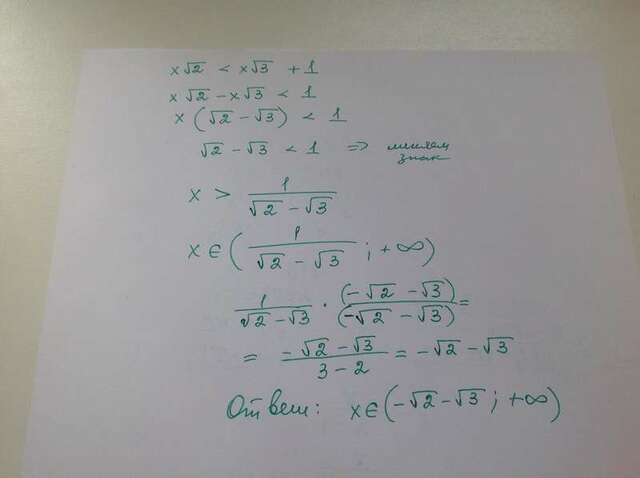 x√2 < x√3 + 1
x√2 - x√3 < 1
x(√2 - √3) < 1
√2 - √3 < 1 => меняем знак
x > 1/(√2 - √3)
x ∈ (1/(√2 - √3) ; +∞)
1/(√2 - √3) · (-√2 - √3)/(-√2 - √3) =
= (-√2 - √3)/(3 - 2) = -√2 - √3
Ответ: x ∈ (-√2 - √3 ; +∞)